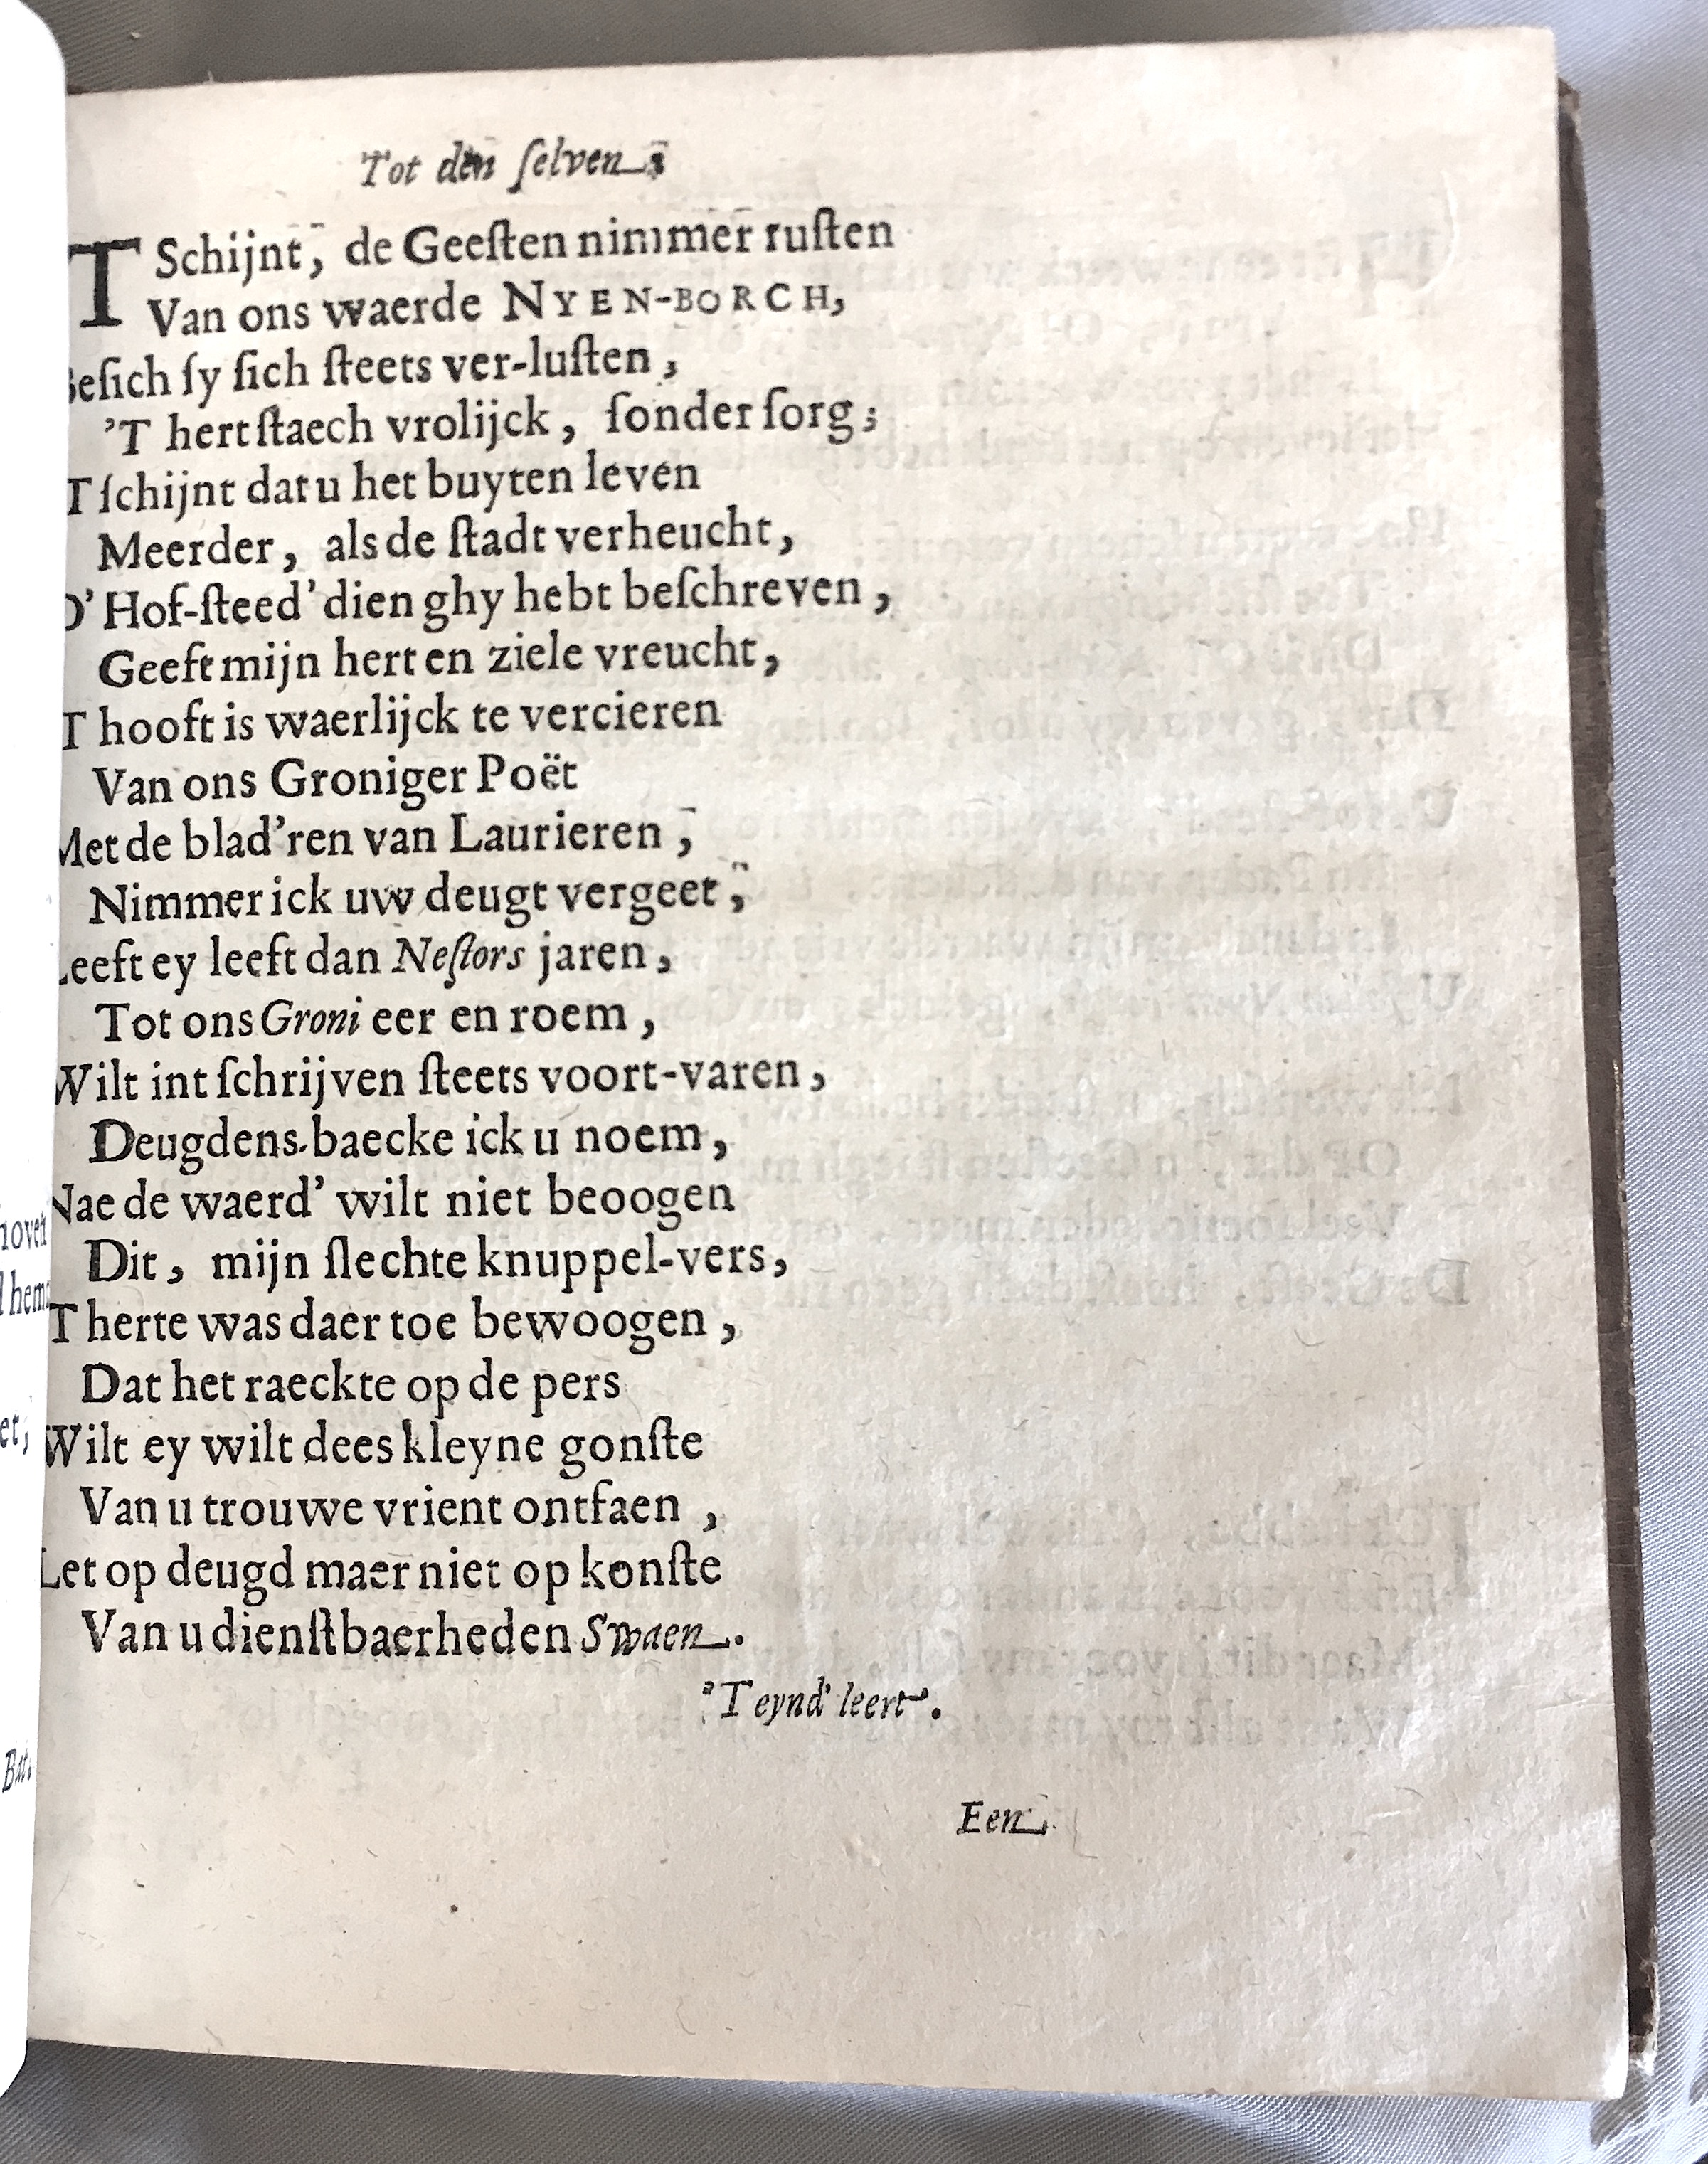 Tot den ſelven.
T Schijnt, de Geeſten nimmer ruſten
Van ons waerde NYEN-BORCH,
Beſich ſy ſich ſteets ver-luſten,
'T hert ſtaech vrolijck, ſonder ſorg;
T ſchijnt dat u het buyten leven
Meerder, als de ſtadt verheucht,
D' Hof-ſteed' dien ghy hebt beſchreven,
Geeft mijn hert en ziele vreucht,
T hooft is waerlijck te vercieren
Van ons Groniger Poët
Met de blad'ren van Laurieren,
Nimmer ick uw deugt vergeet,
Leeft ey leeft dan Neſtors jaren,
Tot ons Groni eer en roem,
Wilt int ſchrijven ſteets voort-varen,
Deugdens-baecke ick u noem,
Nae de waerd' wilt niet beoogen
Dit, mijn ſlechte knuppel-vers,
T herte was daer toe bewoogen,
Dat het raeckte op de pers
Wilt ey wilt dees kleyne gonſte
Van u trouwe vrient ontfaen,
Let op deugd maer niet op konſte
Van u dienſtbaerheden Swaen.
'T eynd' leert.
Een